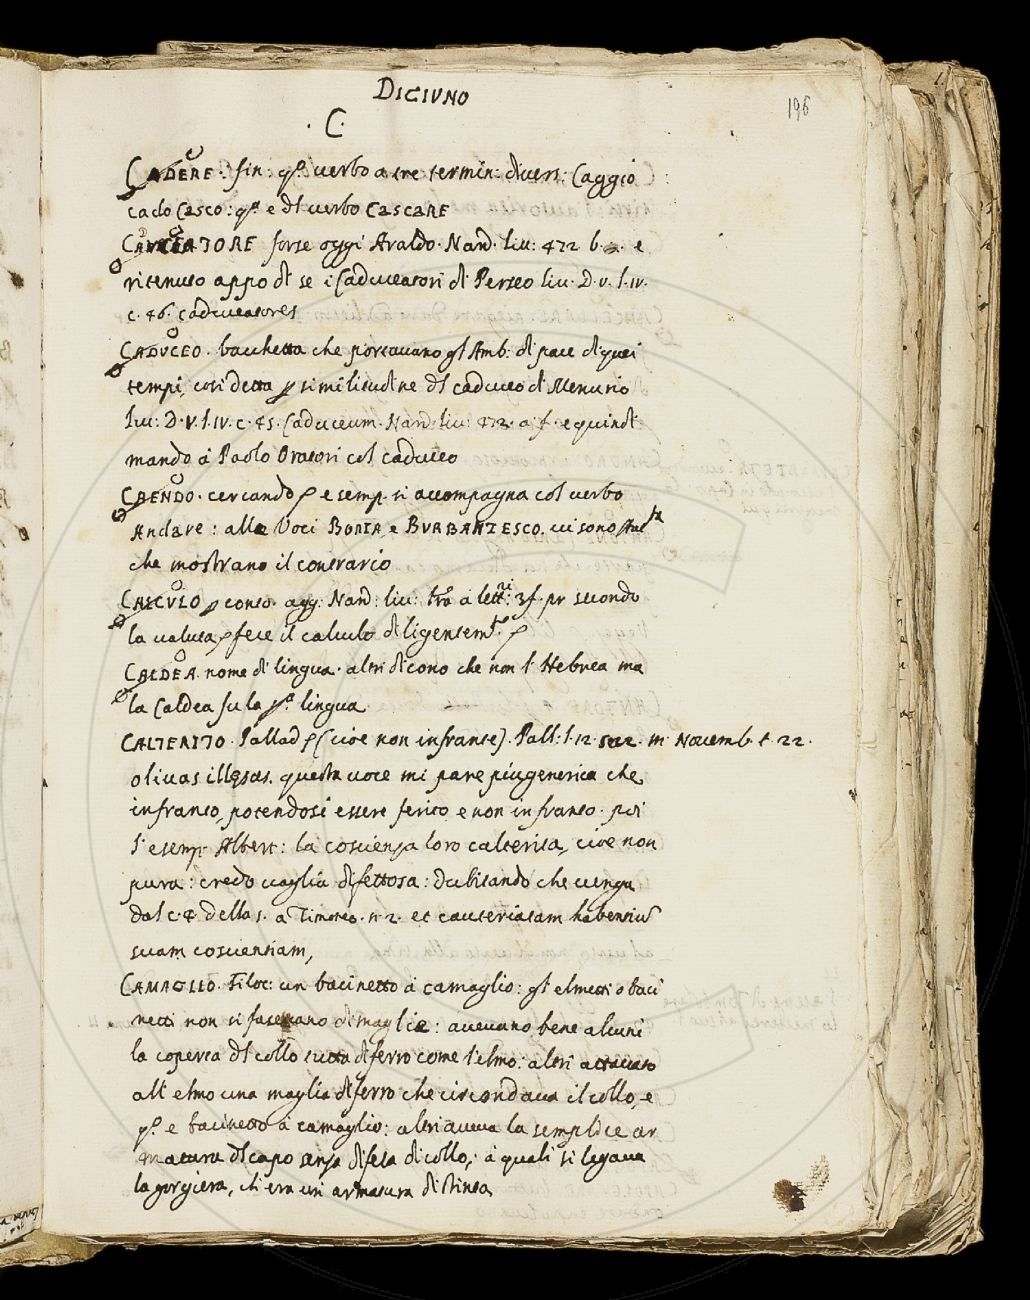 DIGIUNO
196
.C.
CADERE. fin: qo. verbo a tre termin: divers: Caggio
cado Casco: qo. e dl verbo CascaRE
CADUCEATORE forse oggi Araldo. Nard. liv: 472 b. e
ritenuto appo di se i Caduceatori di Perseo liv. D.v.l.iv.
c. 46. caduceatores
CADUCEO. bacchetta che portavano gl Amb: di pace di quei
tempi, cosi detta p similitudne dl caduceo di Mercurio
liv: D.v.l.iv.c.45. Caduceum. Nard liv: 472. a f. e quindi
mando à Paolo Oratori col caduceo
CAENDO. cercando p e semp. si accompagna col verbo
Andare: alle Voci BORIA, e BURBANZESCO. vi sono
che mostrano il contrario
CALCULO p conto. agg. Nard: liv: tro. a lett: 3f. pr secondo
la valuta p fece il calculo diligentemte. p
CALDEA. nome di lingua. altri dicono che non l'Hebrea ma
la Caldea fu la pa. lingua
CALTERITO. Pallad p (cioe non infrante). Pall: l.12. m. Novemb. t. 22.
olivas illęsas. questa voce mi pare piu generica che
infranto, potendosi essere ferito, e non infranto. poi
l'esemp. Albert: la coscienza loro calterita, cioe non
pura: credo voglia difettosa: dubitando che venga
dal c.4. della 1. a Timoteo. n. 2. et cauteriatam habentiū
suam coscientiam,
CAMAGLIO. Filoc: un bacinetto à camaglio: gl elmetti o baci
netti non si facevano di maglie: avevano bene alcuni
la coperta dl collo tutta di ferro come l'elmo: altri attaccato
all'elmo una maglia di ferro che circondava il collo, e
qo. e bacinetto à camaglio: altri aveva la semplice ar
matura dl capo senza difesa di collo, à quali si legava
la gorgiera, ch era un' armatura distinta